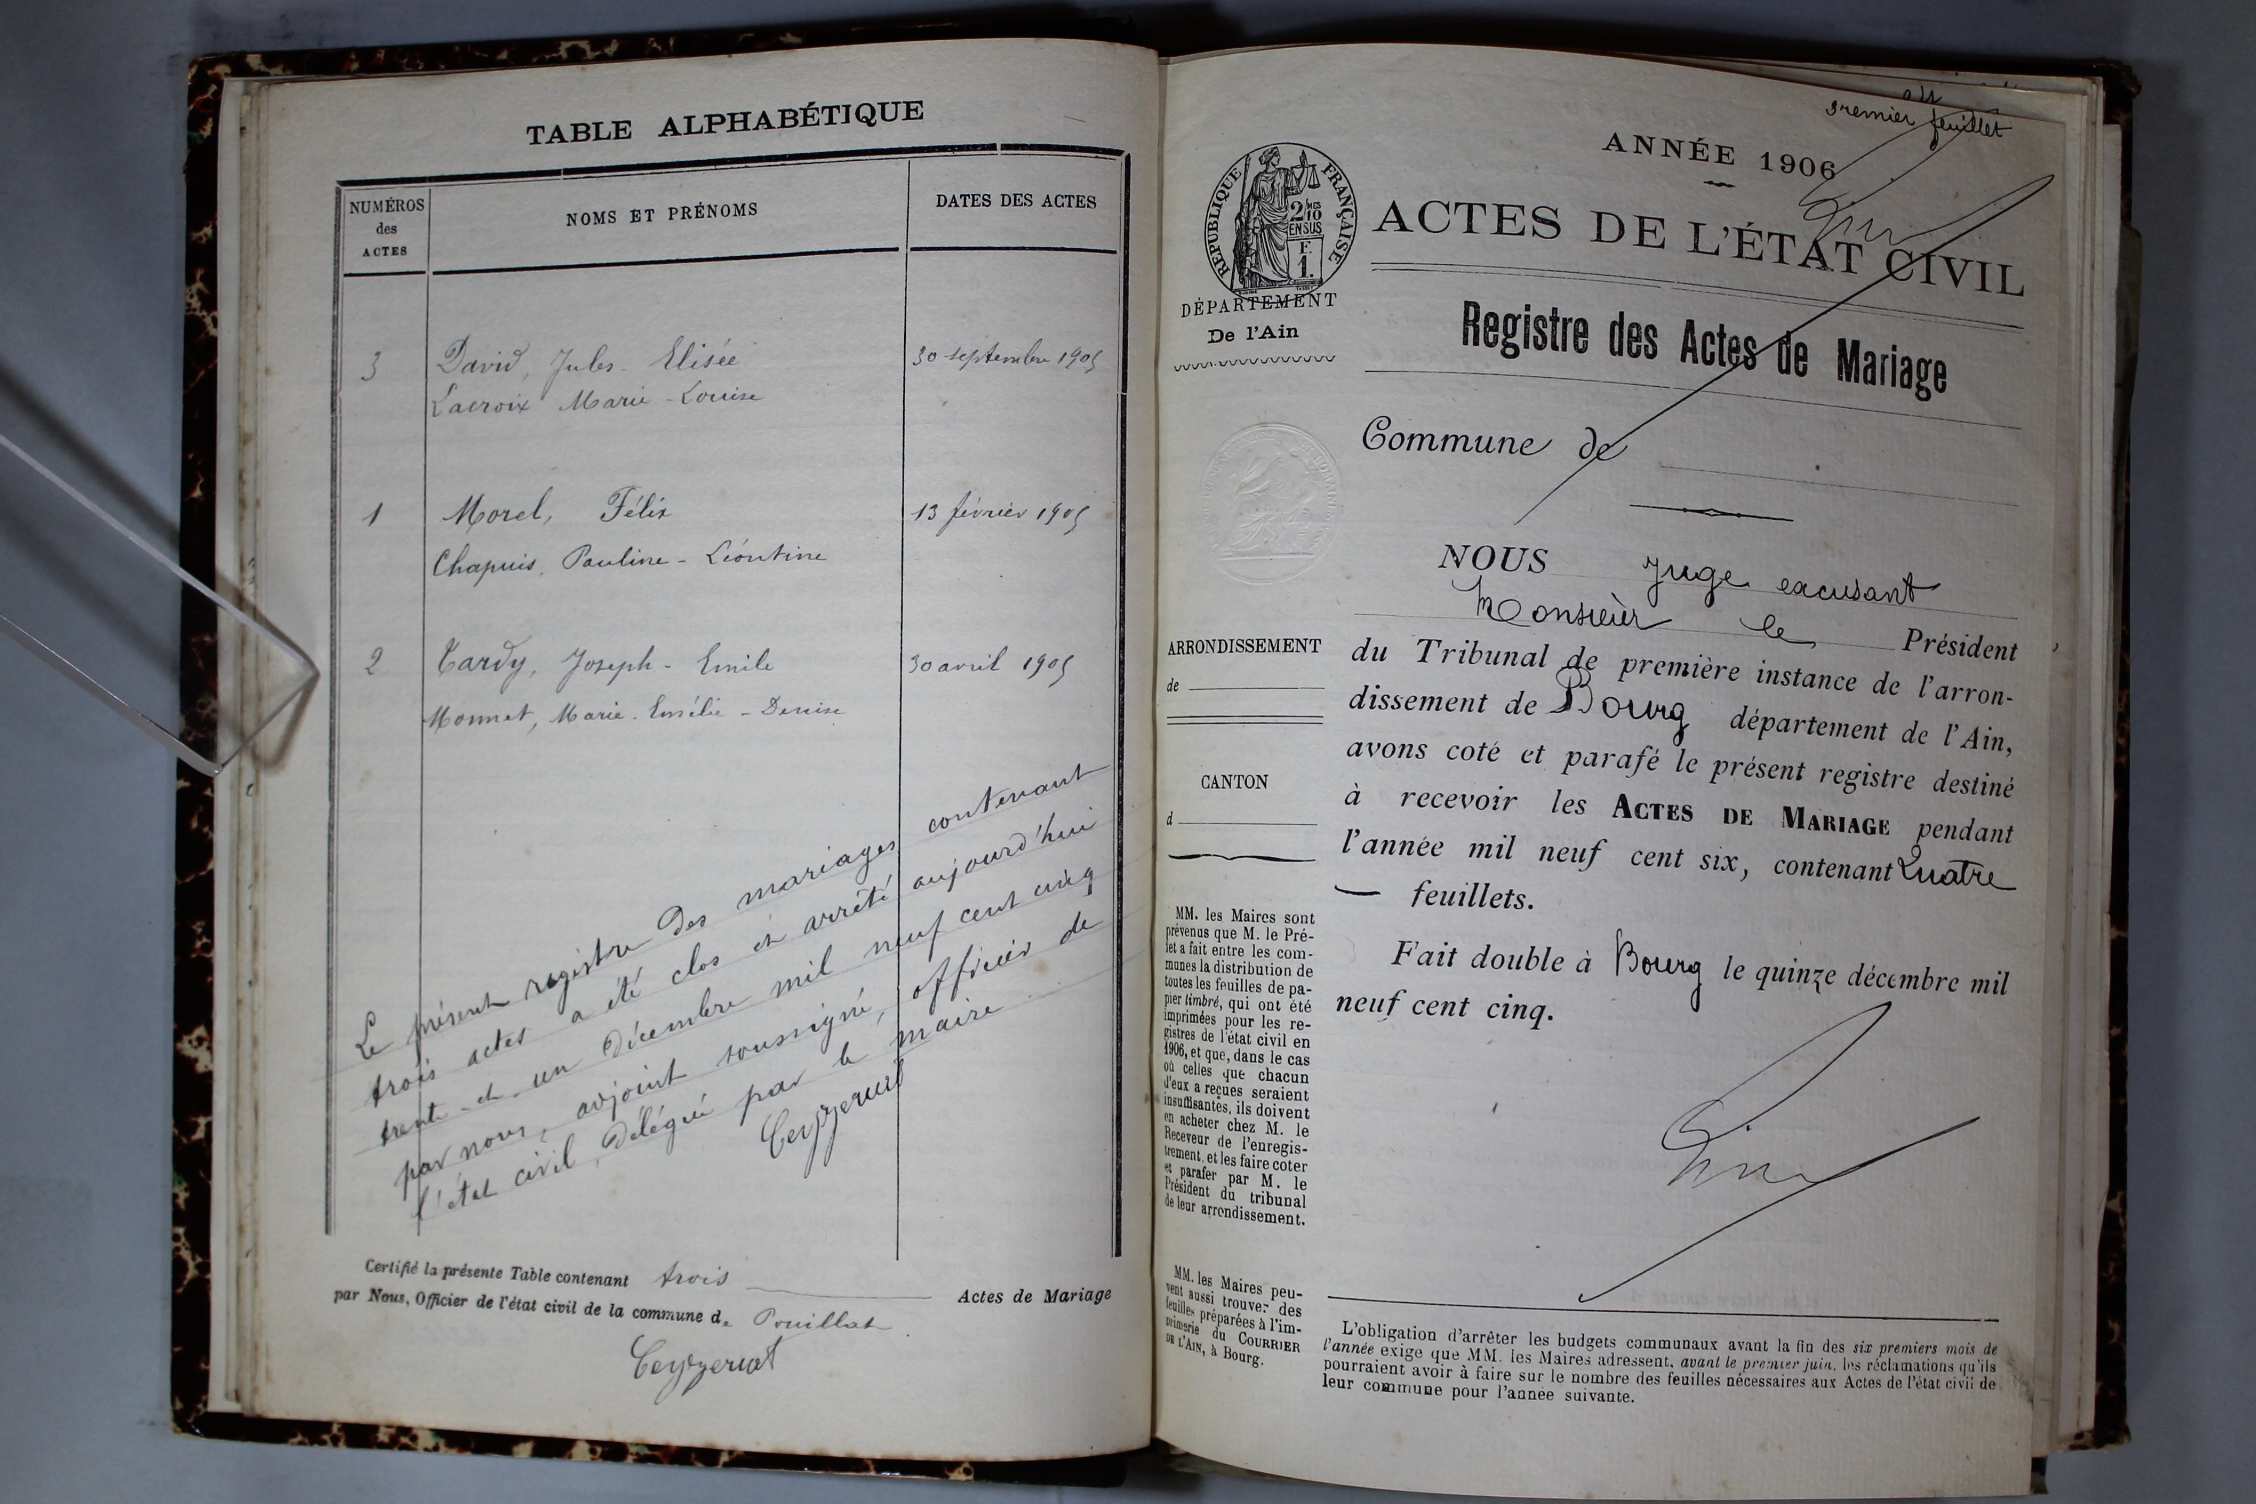 TABLE ALPHABÉTIQUE
NUMÉROS
des
ACTES
NOMS ET PRÉNOMS
DATES DES ACTES
3 David, Jules-Elisée 30 septembre 1905
Lacroix Marie-Louise
1 Morel, Félix 13 février 1905
Chapuis, Pauline-Léontine
2 Tardy, Joseph-Emile 30 avril 1905
Monnet, Marie-Emélie-Denise
Le présent registre des mariages contenant
trois actes a été clos et arrêté aujourd'hui
trente-et-un décembre mil neuf cent cinq
par nous, adjoint soussigné, officier de
l'état civil, délégué par le maire
Ceyzeriat
Certifié la présente Table contenant trois Actes de Mariage
par Nous, Officier de l'état civil de la commune de Pouillat
Ceyzeriat
premier feuillet
ANNÉE 1906
RÉPUBLIQUE FRANÇAISE
2/10MES
EN SUS
F.
1.
ACTES DE L'ÉTAT CIVIL
DÉPARTEMENT
De l'Ain
Registre des Actes de Mariage
Commune de
NOUS juge excusant
Monsieur le Président
du Tribunal de première instance de l'arron-
dissement de Bourg département de l'Ain,
avons coté et parafé le présent registre destiné
à recevoir les ACTES DE MARIAGE pendant
l'année mil neuf cent six, contenant Quatre
— feuillets.
Fait double à Bourg le quinze décembre mil
neuf cent cinq.
ARRONDISSEMENT
de
CANTON
d
MM. les Maires sont
prévenus que M. le Pré-
fet a fait entre les com-
munes la distribution de
toutes les feuilles de pa-
pier timbré, qui ont été
imprimées pour les re-
gistres de l'état civil en
1906, et que, dans le cas
où celles que chacun
d'eux a reçues seraient
insuffisantes, ils doivent
en acheter chez M. le
Receveur de l'enregis-
trement, et les faire coter
et parafer par M. le
Président du tribunal
de leur arrondissement.
MM. les Maires peu-
vent aussi trouver des
feuilles préparées à l'im-
primerie du COURRIER
DE L'AIN, à Bourg.
L'obligation d'arrêter les budgets communaux avant la fin des six premiers mois de
l'année exige que MM. les Maires adressent, avant le premier juin, les réclamations qu'ils
pourraient avoir à faire sur le nombre des feuilles nécessaires aux Actes de l'état civil de
leur commune pour l'année suivante.